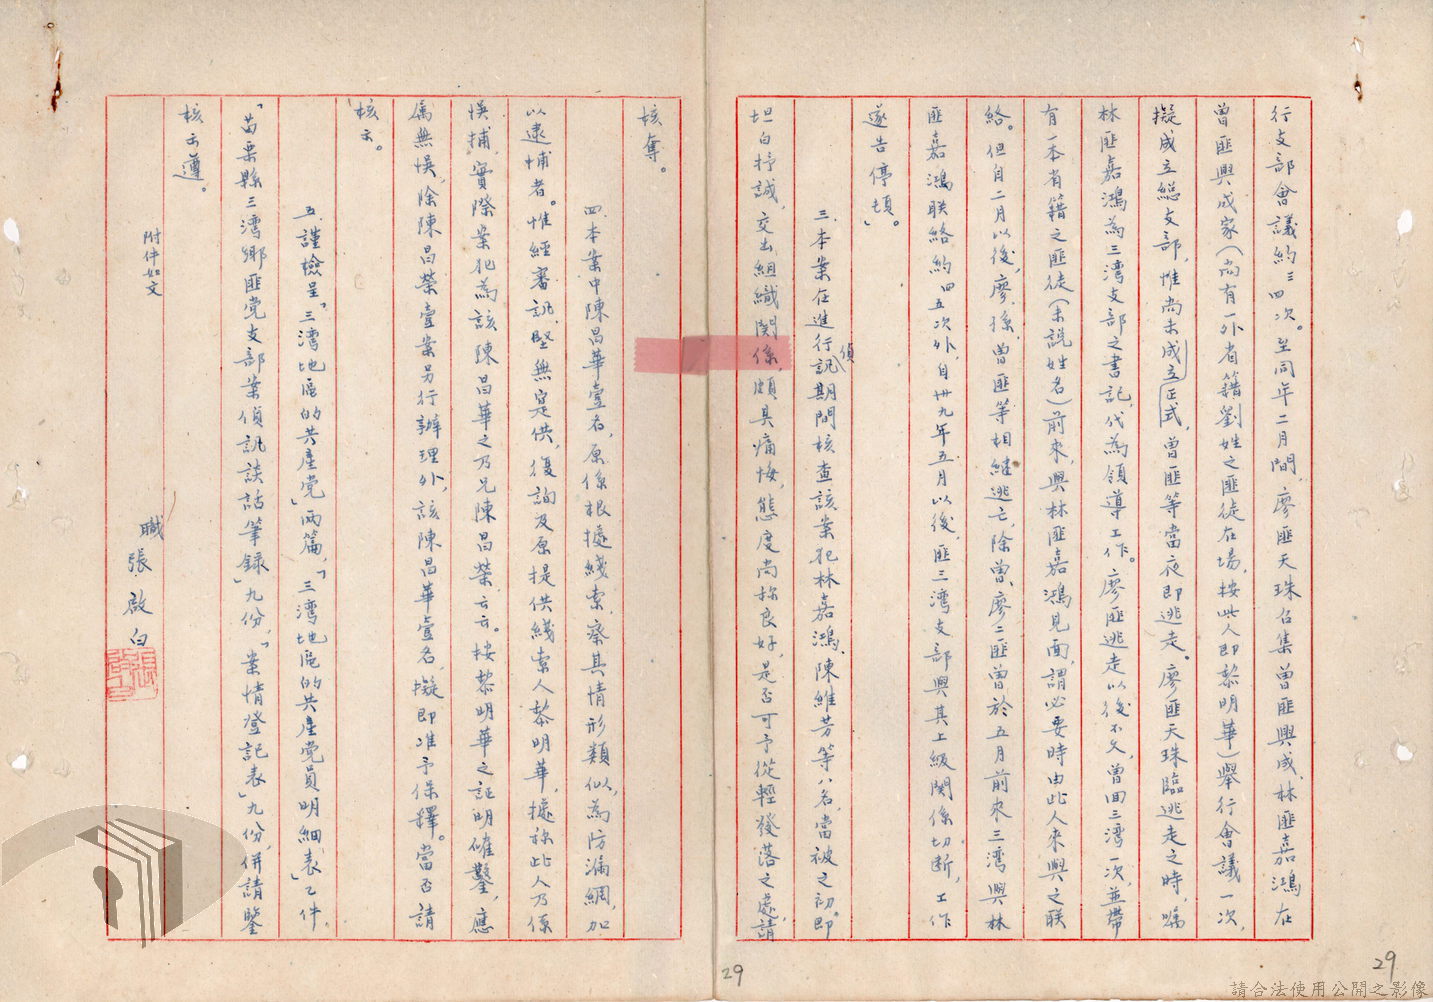 行支部會議約三四次。至同年二月間，廖匪天珠召集曾匪興成、林匪嘉鴻在
曾匪興成家（尚有一外省籍劉姓之匪徒在場，按此人即黎明華）舉行會議一次，
擬成立総支部，惟尚未成立正式，曾匪等當夜即逃走。廖匪天珠臨逃走之時，嘱
林匪嘉鴻為三湾支部之書記，代為領導工作。廖匪逃走以後不久，曾回三湾一次，並帶
有一本省籍之匪徒（未説姓名）前來，與林匪嘉鴻見面，謂必要時由此人來與之联
絡。但自二月以後，廖、孫、曾匪等相継逃亡，除曾、廖二匪曾於五月前來三湾與林
匪嘉鴻联絡約四五次外，自卅九年五月以後，匪三湾支部與其上級関係切断，工作
遂告停頓。」
三、本案在進行偵訊期間核查該案犯林嘉鴻、陳維芳等八名，當被之初即
坦白抒誠，交出組織関係，頗具痛悔，態度尚称良好，是否可予從輕發落之處，請
核奪。
四、本案中陳昌華壹名，原係根據綫索，察其情形類似，為防漏綱，加
以逮捕者。惟經審訊，堅無寔供，復詢及原提供綫索人黎明華，據称此人乃係
悮捕，實際案犯為該陳昌華之乃兄陳昌榮，云云。按黎明華之証明確鑿，應
属無悞，除陳昌榮壹案另行辦理外，該陳昌華壹名，擬即准予保釋。當否請
核示。
五、謹檢呈「三湾地區的共產党」両篇，「三湾地區的共產党員明細表」乙件，
「苗栗縣三湾鄉匪党支部案偵訊談話筆録」九份，「案情登記表」九份，併請鑒
核示遵。
附件如文
職 張啟白
29
29
請合法使用公開之影像